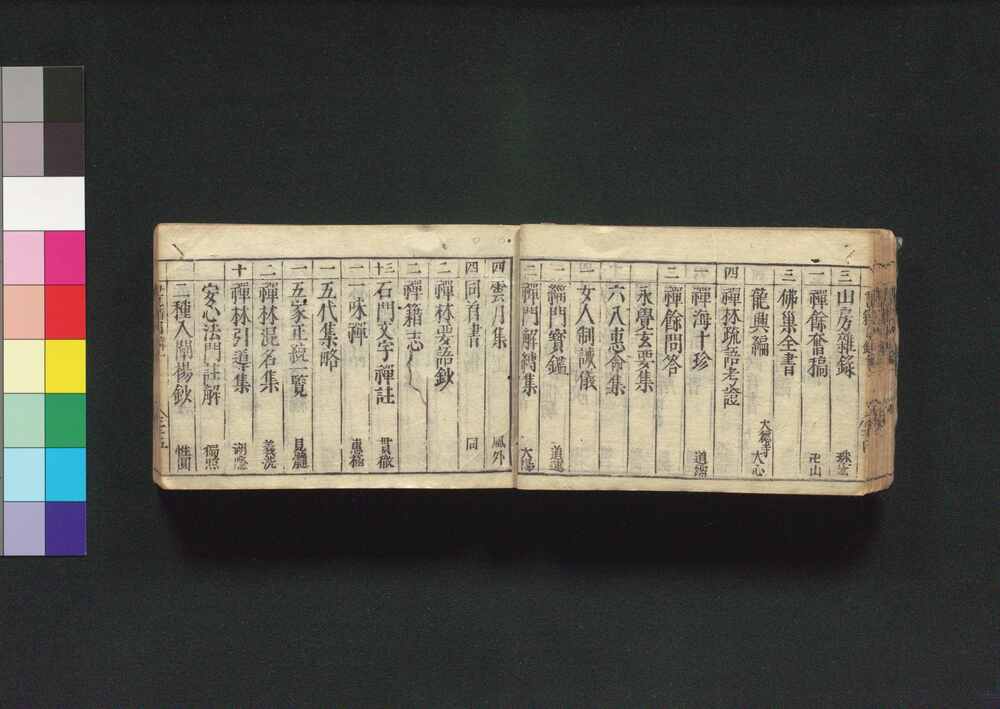 三 山房雜錄
一 禪餘奮稿 卍山
三 佛巢全書
龍興編 大德寺 大心
四 禪林疏語考證
一 禪海十珍 道霈
二 禪餘問答
永覺玄要集
六八惠命集
二 女人制誡儀
一 緇門寶鑑
三 禪門解縛集
四 雲月集 風外
四 同首書 同
二 禪林要語鈔
二 禪籍志
三十 石門文字禪註 貫徹
一 一味禪 惠極
一 五代集略
一 五家正宗一覽
二 禪林混名集
十 禪林引導集
安心法門註解 獨照
二種入闡揚鈔